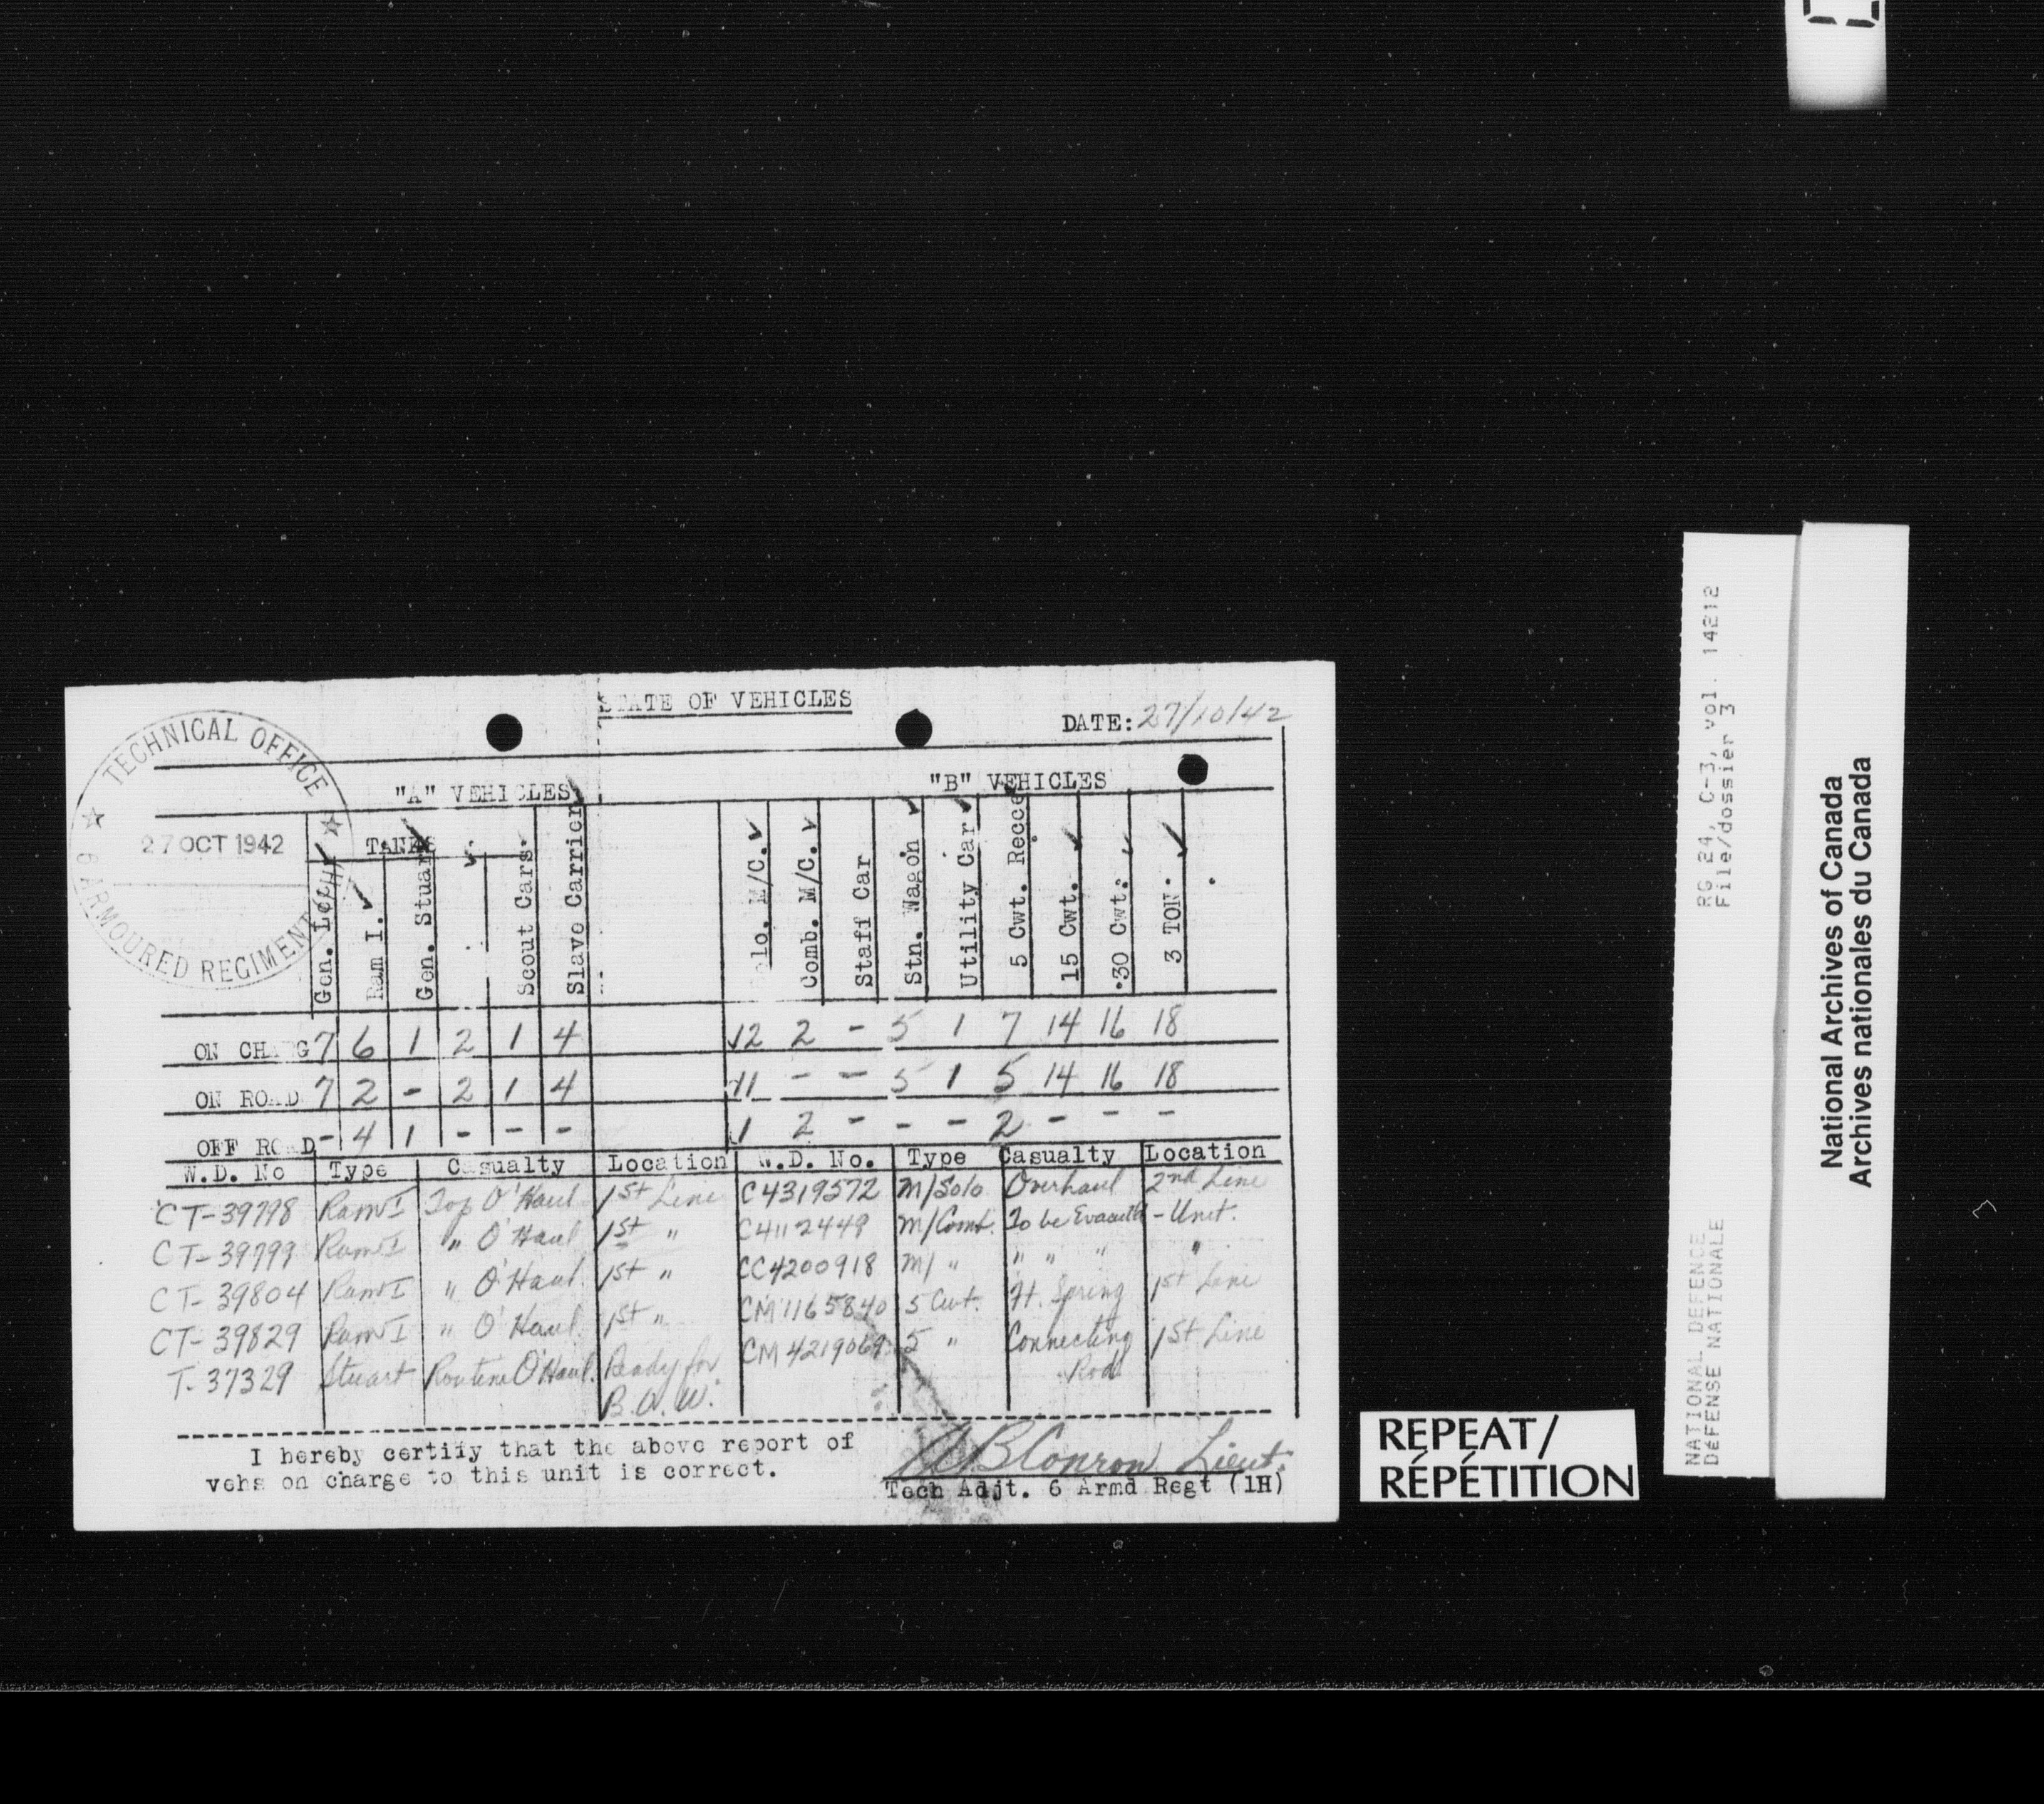 STATE OF VEHICLES
DATE: 27/10/42
TECHNICAL OFFICE
27 OCT 1942
6 ARMOURED REGIMENT
"A" VEHICLES "B" VEHICLES
TANKS
Gen. Lee
Ram I.
Gen. Stuart
Scout Cars
Slave Carrier
Solo. M/C.
Comb. M/C.
Staff Car
Stn. Wagon
Utility Car
5 Cwt. Recce
15 Cwt.
30 Cwt.
3 TON.
ON CHARG 7 6 1 2 1 4 12 2 - 5 1 7 14 16 18
ON ROAD 7 2 - 2 1 4 11 - - 5 1 5 14 16 18
OFF ROAD - 4 1 - - - 1 2 - - - 2 - - -
W.D. No Type Casualty Location W.D. No. Type Casualty Location
CT-39798 Ram I Top O'Haul 1st Line C4319572 M/Solo Overhaul 2nd Line
CT-39799 Ram I " O'Haul 1st " C4112449 M/Comb. To be - Unit.
CT-39804 Ram I " O'Haul 1st " CC4200918 M/ " " " " "
CT-39829 Ram I " O'Haul 1st " CM1165840 5 Cwt. Ft. Spring 1st Line
T-37329 Stuart Routine O'Haul. Ready for B.O.W. CM4219069 5 " Connecting Rod 1st Line
I hereby certify that the above report of
vehs on charge to this unit is correct.
Conron Lieut.
Tech Adjt. 6 Armd Regt (1H)
REPEAT/
RÉPÉTITION
NATIONAL DEFENCE
DéFENSE NATIONALE
RG 24, C-3, vol. 14212
File/dossier 3
National Archives of Canada
Archives nationales du Canada